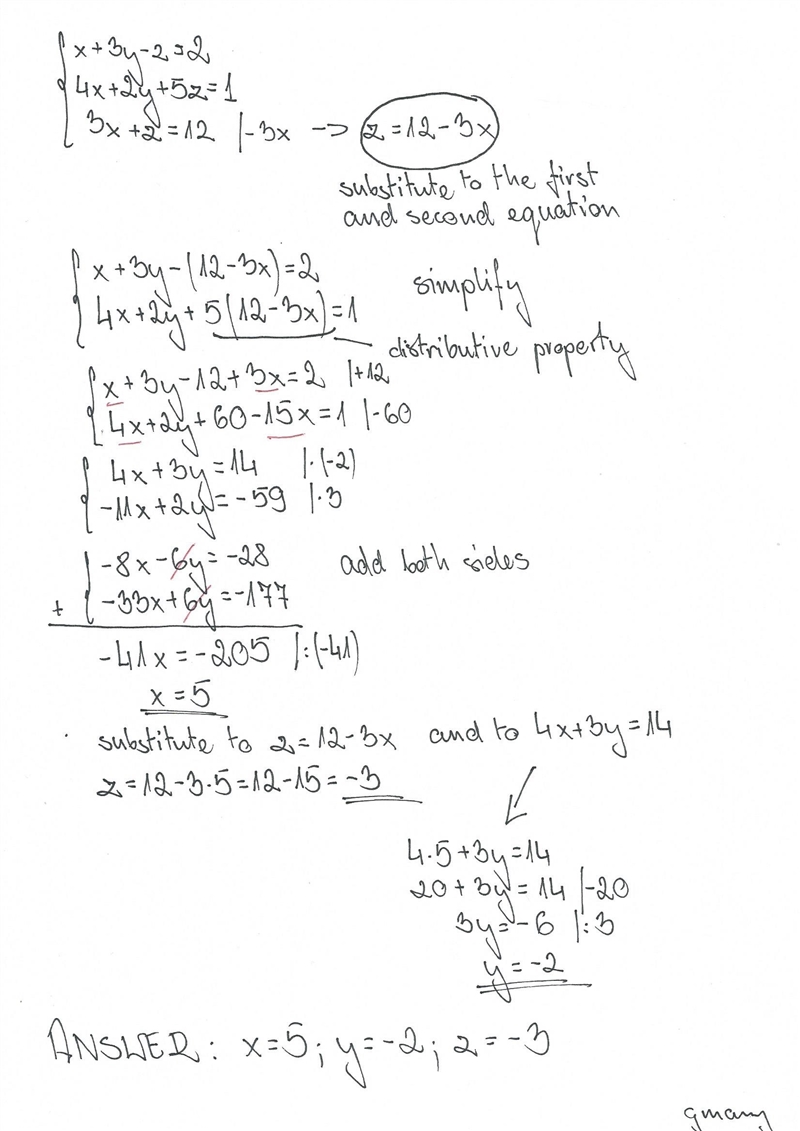 x+3y-z=2
4x+2y+5z=1
3x+z=12 |-3x -> z=12-3x
substitute to the first
and second equation
x+3y-(12-3x)=2
simplify
4x+2y+5(12-3x)=1
distributive property
x+3y-12+3x=2 |+12
4x+2y+60-15x=1 |-60
4x+3y=14 |·(-2)
-11x+2y=-59 |·3
-8x-6y=-28 add both sides
+ -33x+6y=-177
-41x=-205 |:(-41)
x=5
substitute to z=12-3x and to 4x+3y=14
z=12-3·5=12-15=-3
4·5+3y=14
20+3y=14 |-20
3y=-6 |:3
y=-2
ANSWER: x=5; y=-2; z=-3
gmany